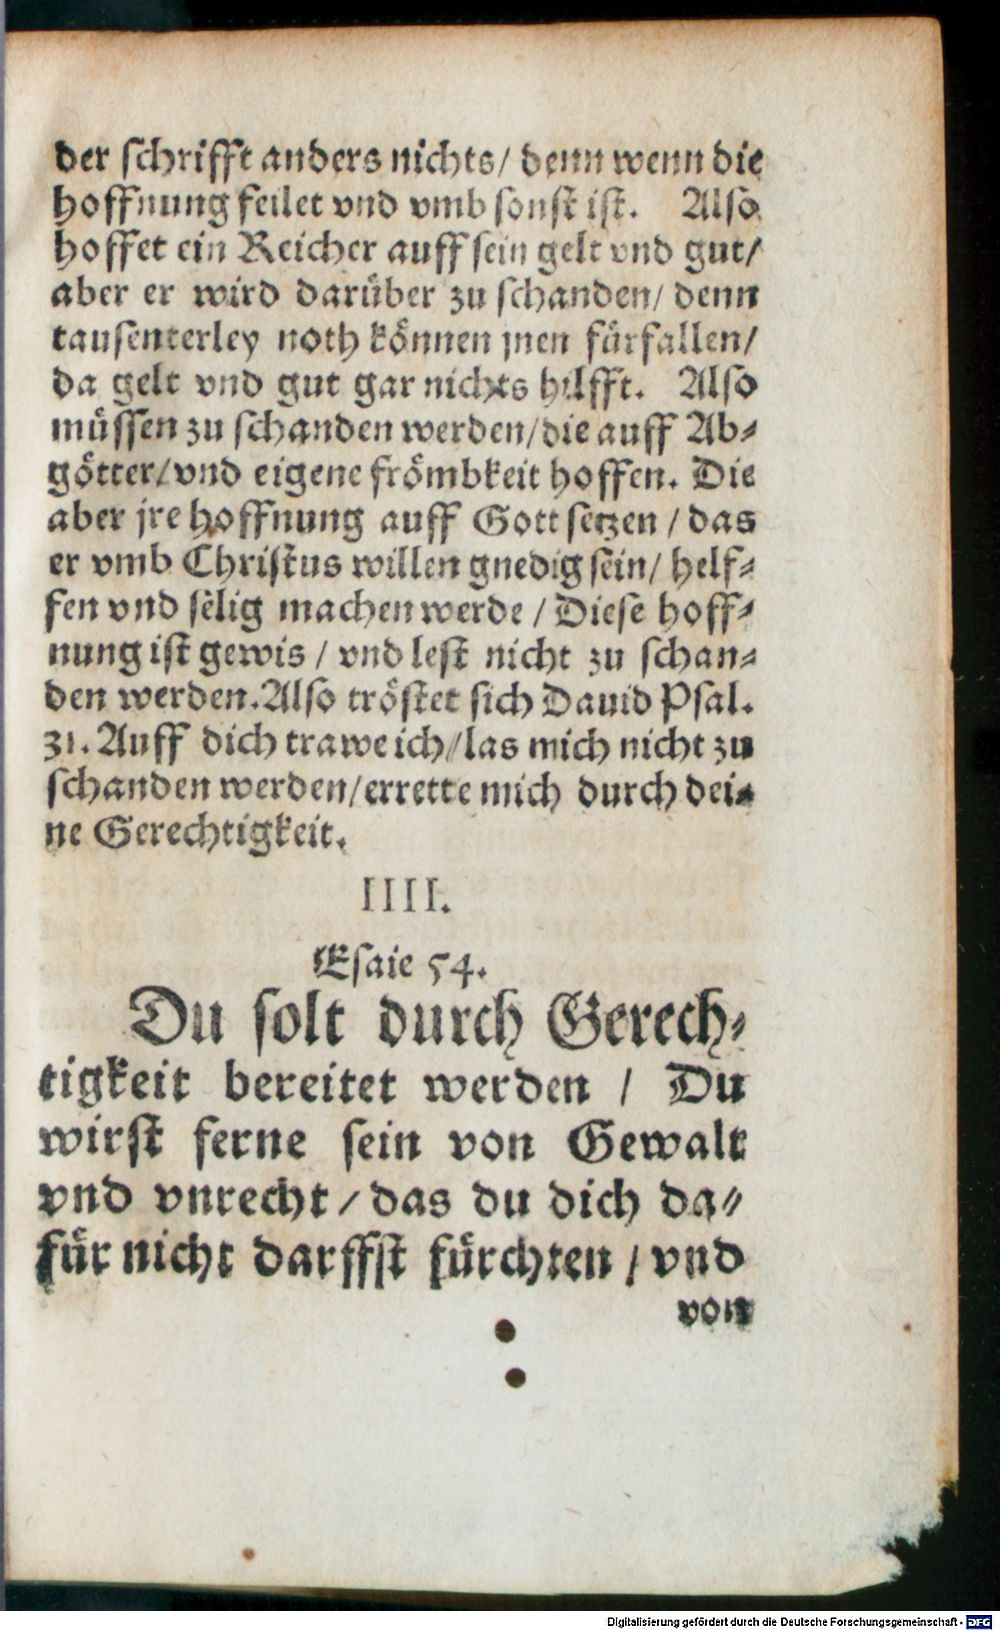 der schrifft anders nichts/ denn wenn die
hoffnung feilet vnd vmb sonst ist. Also
hoffet ein Reicher auff sein gelt vnd gut/
aber er wird darüber zu schanden/ denn
tausenterley noth können jnen fürfallen/
da gelt vnd gut gar nichts hilfft. Also
müssen zu schanden werden/die auff Ab-
götter/vnd eigene frömbkeit hoffen. Die
aber jre hoffnung auff Gott setzen / das
er vmb Christus willen gnedig sein/ helf-
fen vnd selig machen werde / Diese hoff-
nung ist gewis / vnd lest nicht zu schan-
den werden. Also tröstet sich Dauid Psal.
31. Auff dich trawe ich/las mich nicht zu
schanden werden/errette mich durch dei-
ne Gerechtigkeit.
IIII.
Esaie 54.
Du solt durch Gerech-
tigkeit bereitet werden / Du
wirst ferne sein von Gewalt
vnd vnrecht / das du dich da-
für nicht darffst fürchten / vnd
von
Digitalisierung gefördert durch die Deutsche Forschungsgemeinschaft - DFG